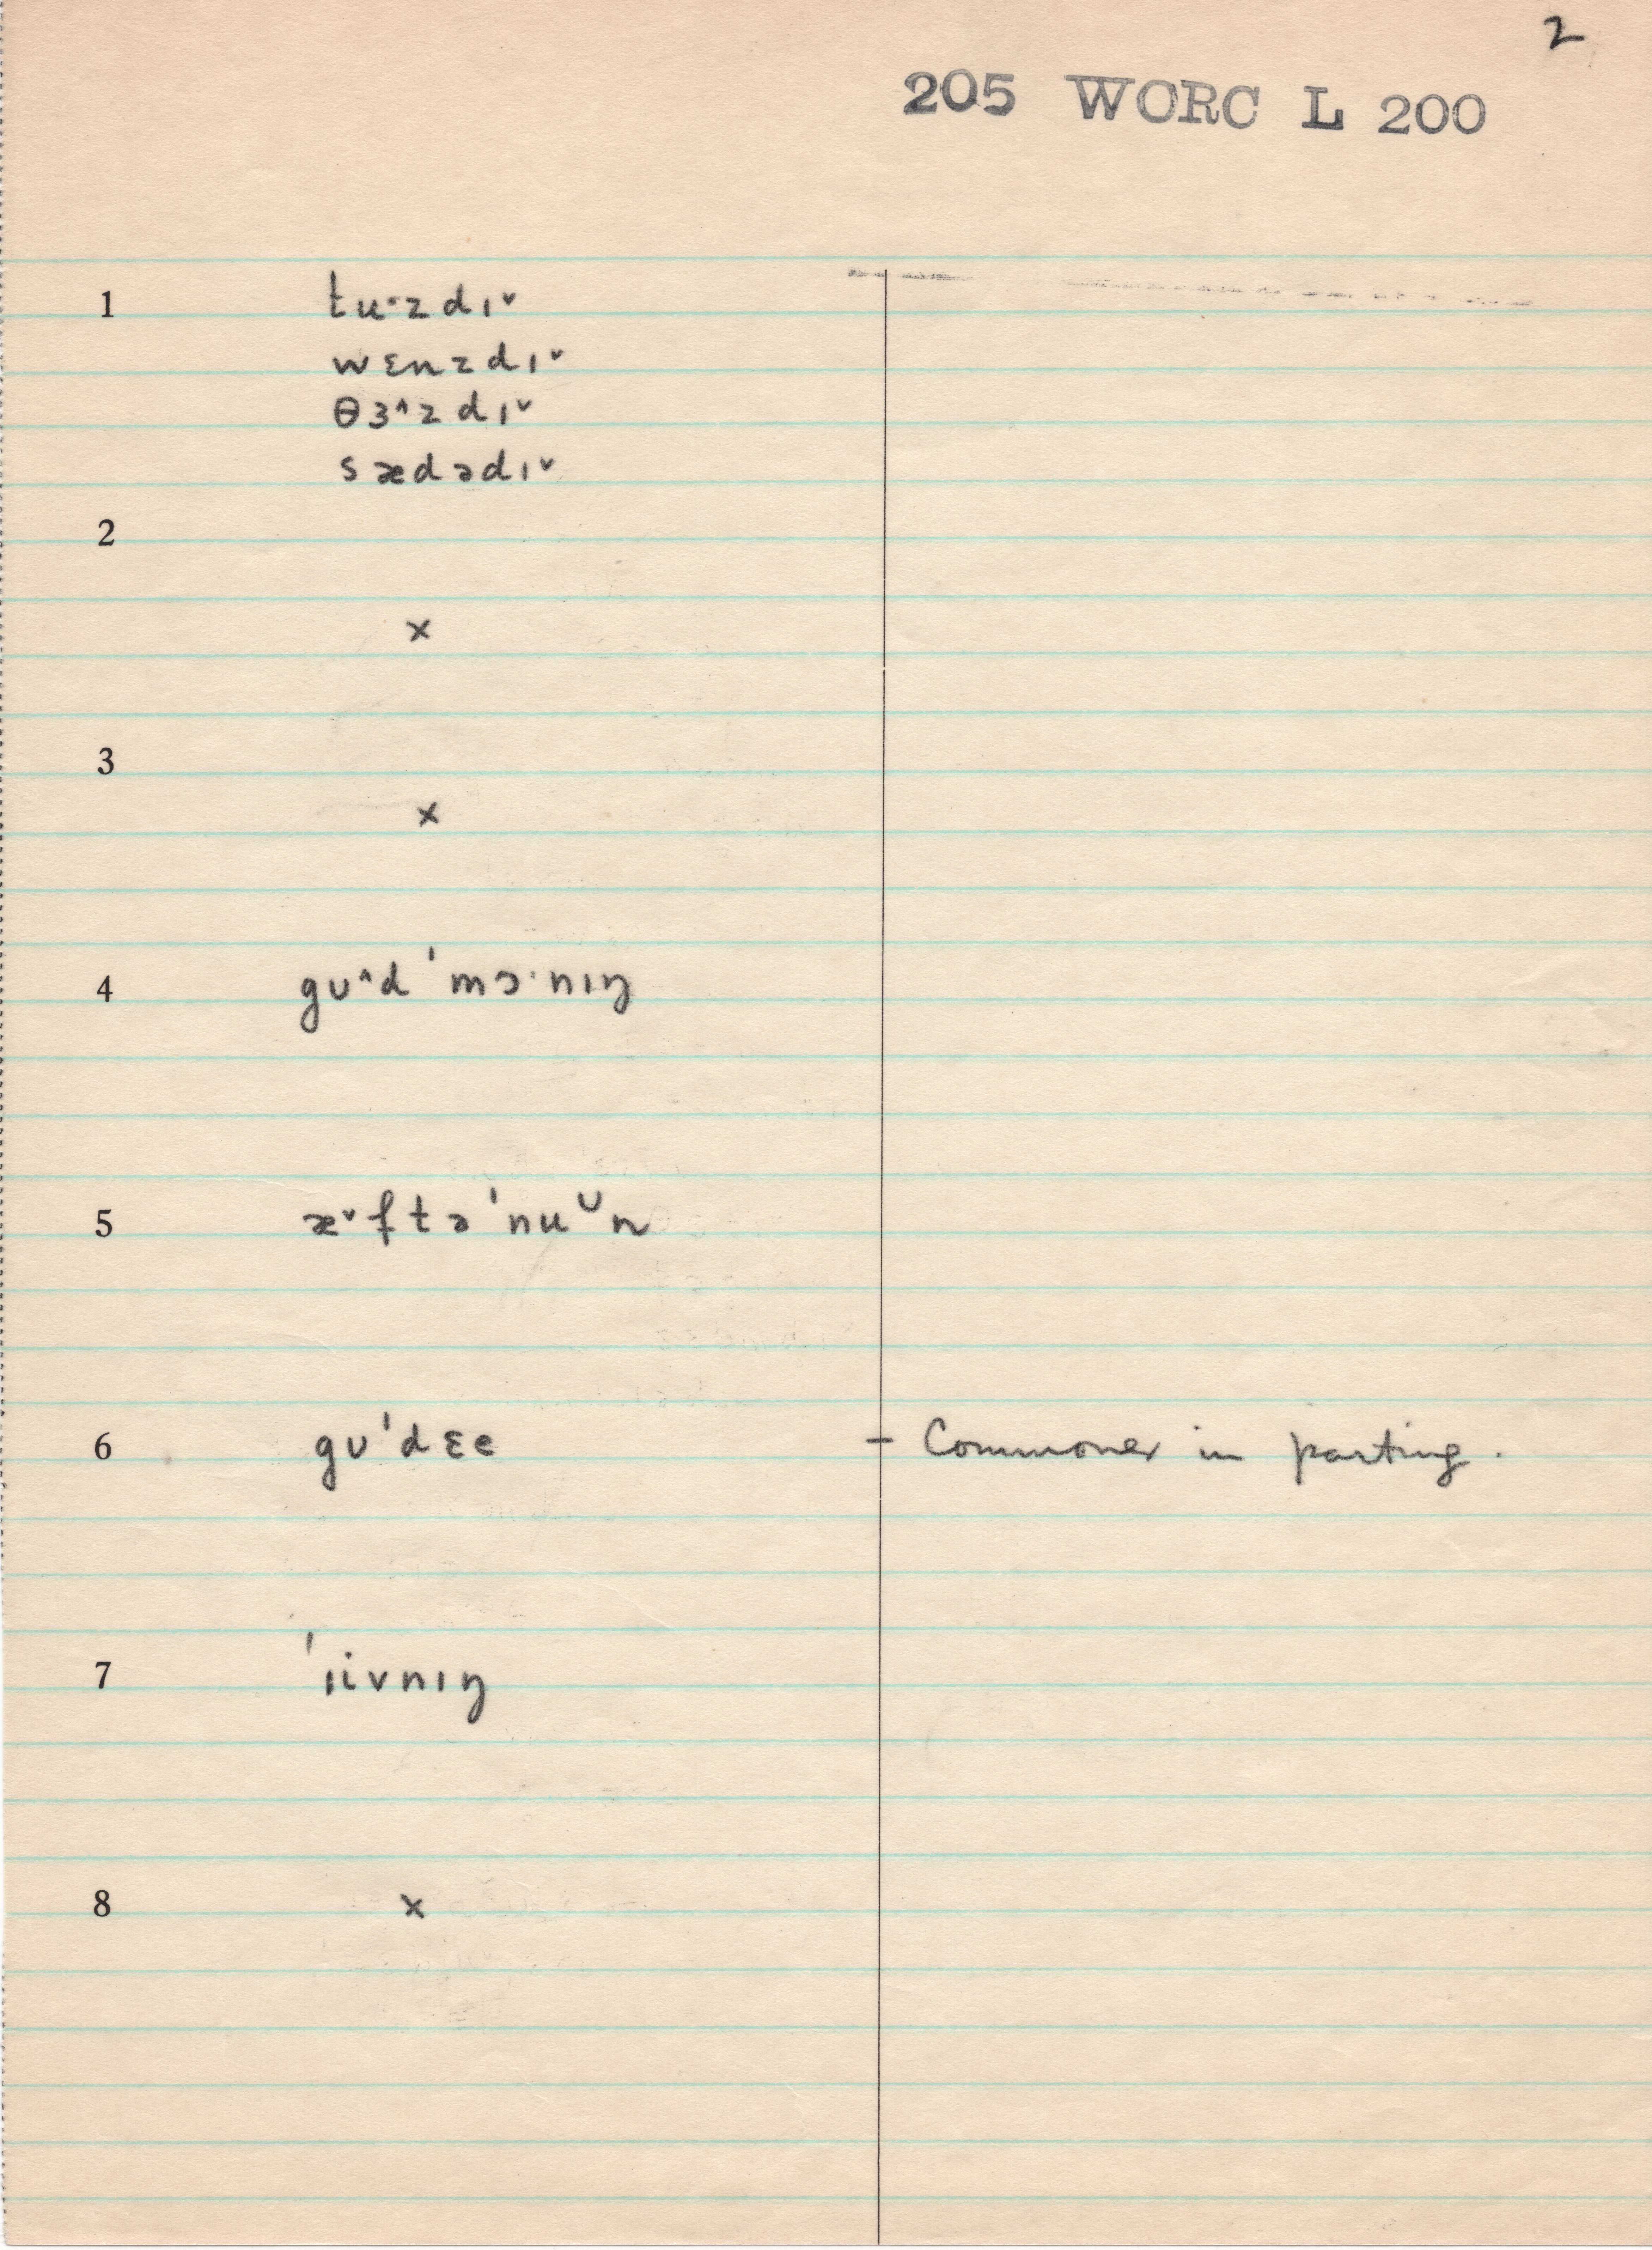 2
205 WORC L 200
1 tu·zdɪ˅
wɛnzdɪ˅
θɜ˄zdɪ˅
sædədɪ˅
2
×
3
×
4 gʊ˄d ˈmɔ·nɪŋ
5 æ˅ftəˈnuᵁn
6 gʊˈdɛe – Commoner in parting.
7 ˈɪivnɪŋ
8 ×